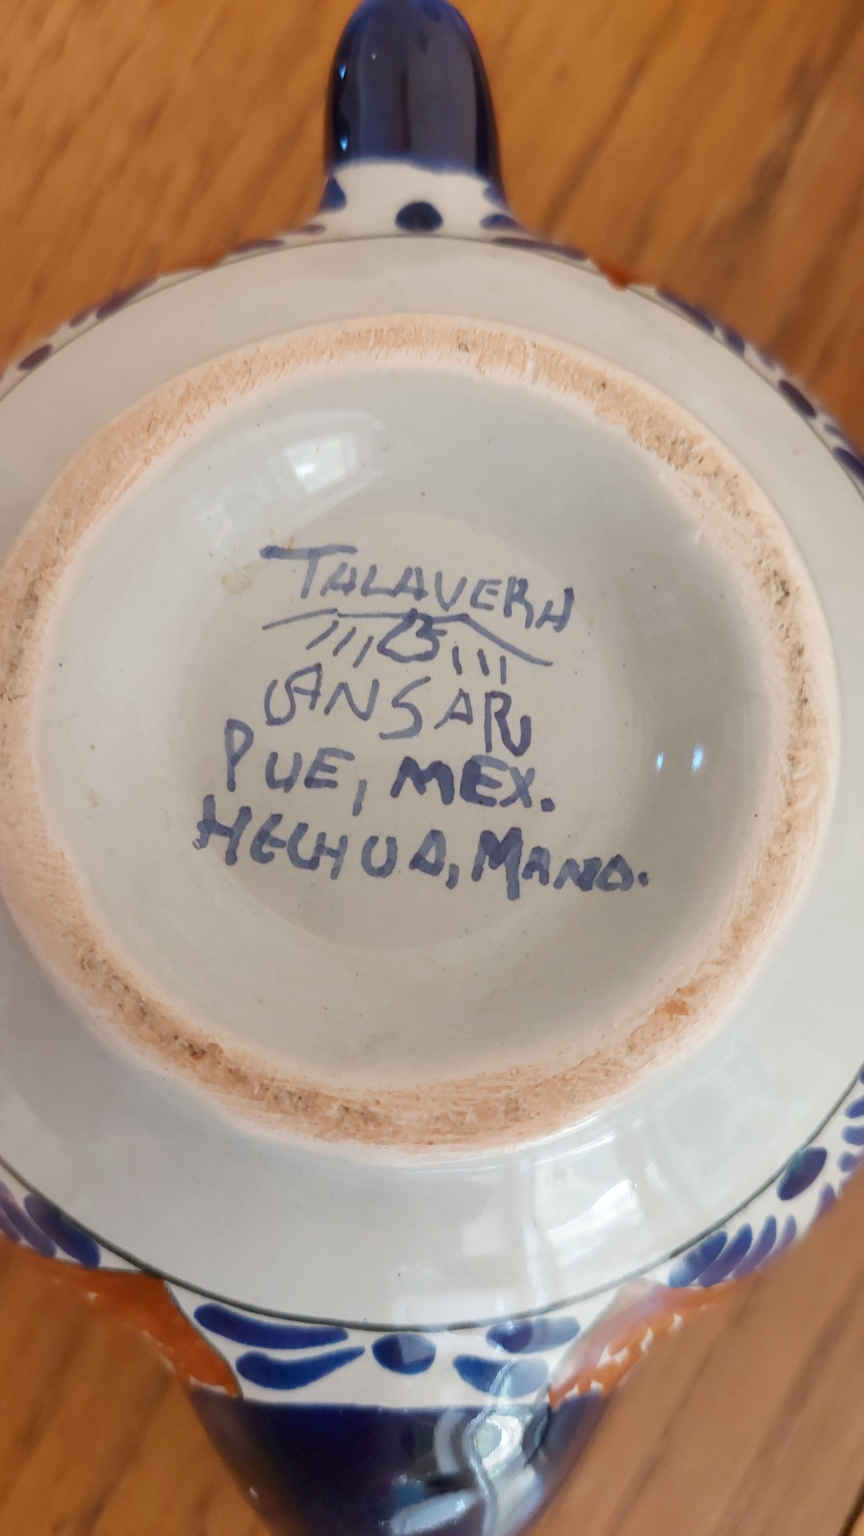 TALAVERA
ANSAR
PUE, MEX.
HECHUO, MANO.